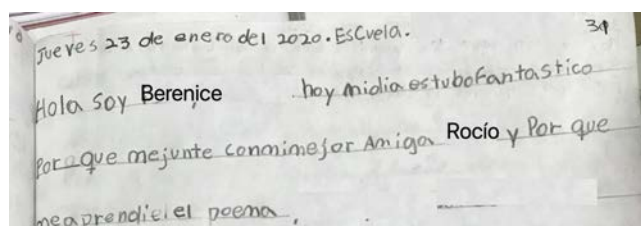 Jueves 23 de enero del 2020. Escvela. 31
Hola soy Berenice hoy midia estubo Fantastico
Por que mejunte conmimejor Amiga Rocío y Por que
meaprendiciel poema.